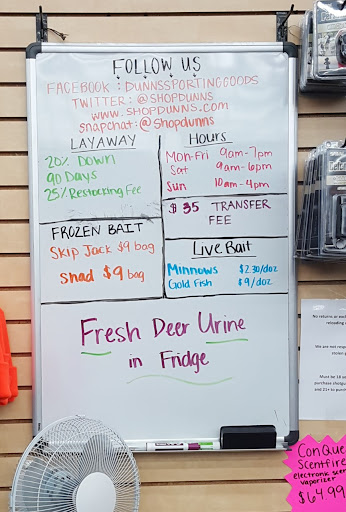 FOLLOW US
FACEBOOK: DUNNSSPORTINGGOODS
TWITTER: @SHOPDUNNS
WWW.SHOPDUNNS.COM
SNAPCHAT: @Shopdunns
LAYAWAY
20% Down
90 Days
25% Restocking Fee
Hours
Mon-Fri 9am-7pm
Sat 9am-6pm
Sun 10am-4pm
$35 TRANSFER
FEE
FROZEN BAIT
Skip Jack $9 bag
Shad $9 bag
Live Bait
Minnows $2.30/doz
Gold Fish $9/doz
Fresh Deer Urine
in Fridge
No returns or
reloading
We are not
stolen
Must be 18
purchase shotgu
and 21+ to purch
ConQue
Scentfire
electronic scen
vaporizer
$64.99